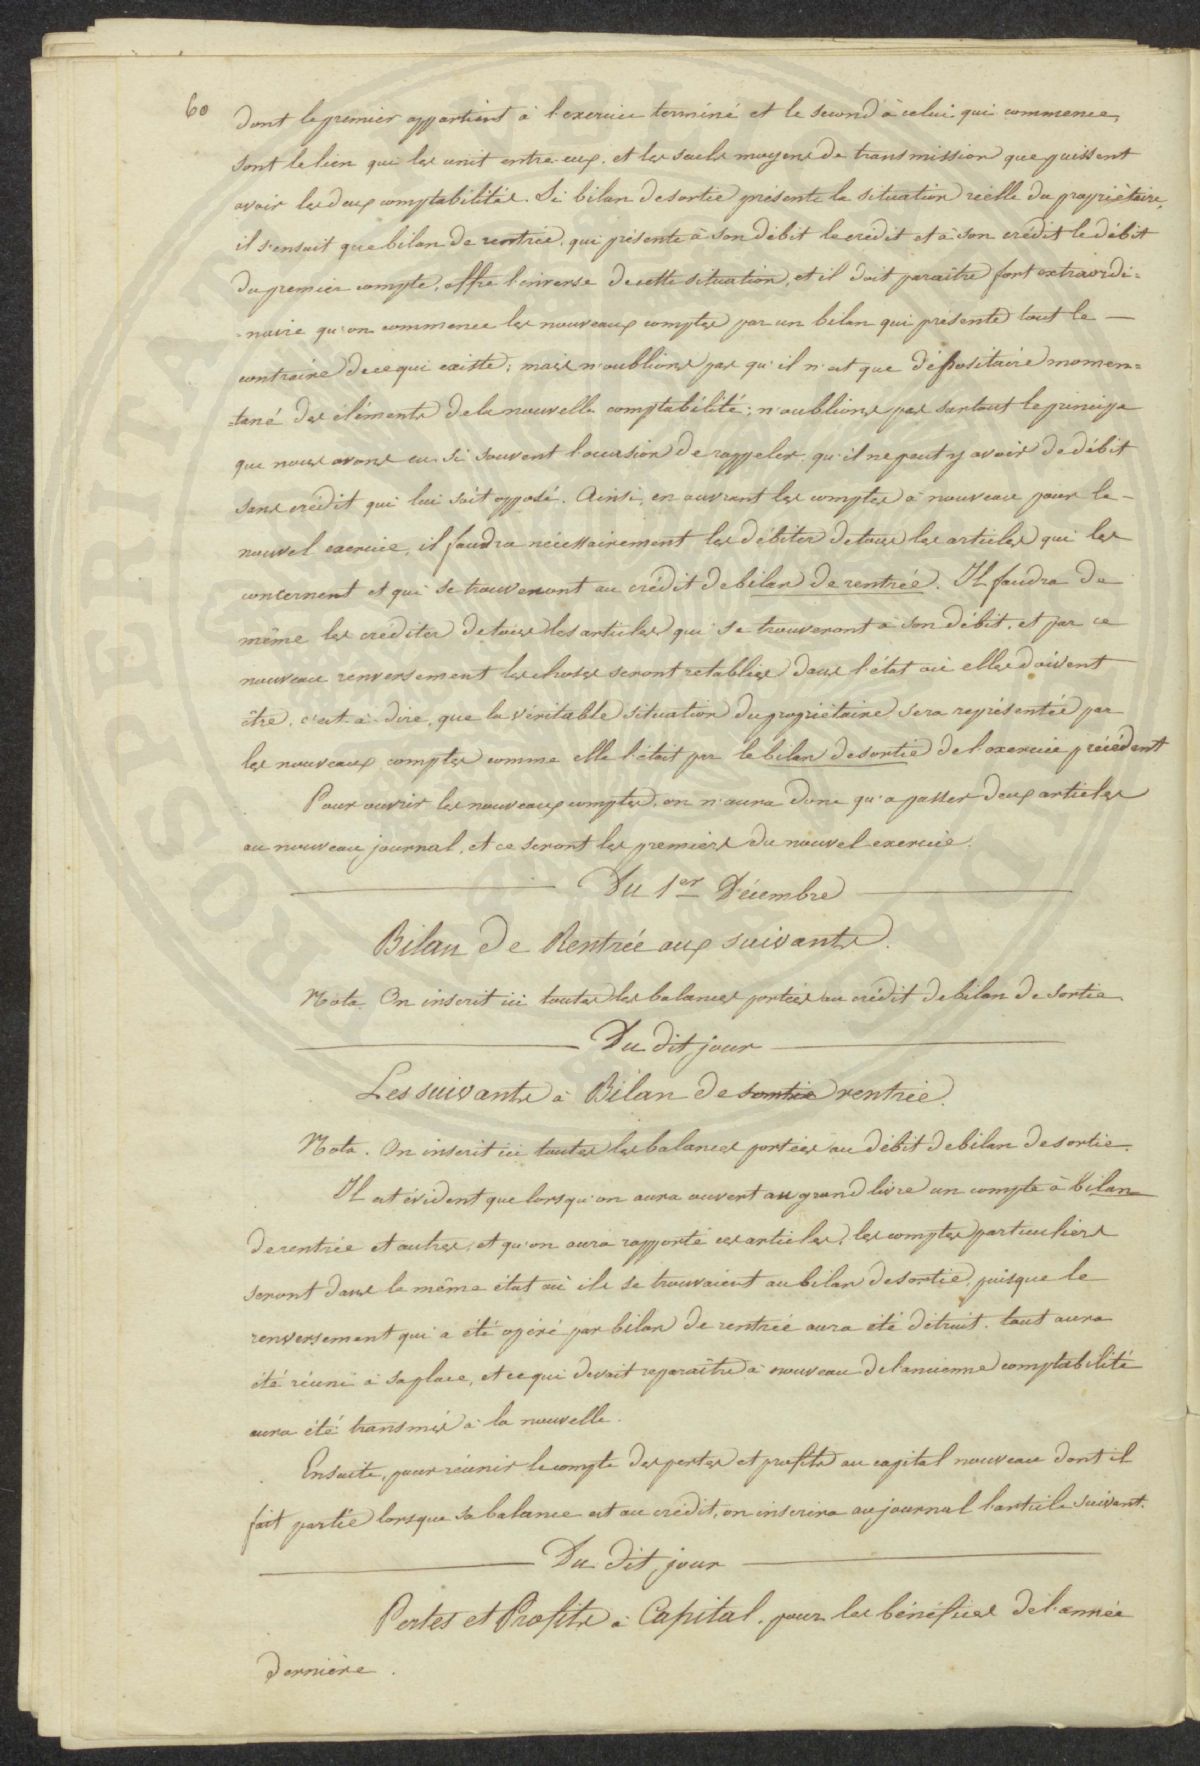 60
dont le premier appartient à l'exercice terminé et le second à celui qui commence,
sont le lien qui les unit entre eux, et les seuls moyens de transmission que puissent
avoir les deux comptabilités. Si bilan de sortie présente la situation réelle du propriétaire,
il s'ensuit que bilan de rentrée, qui présente à son débit le crédit et à son crédit le débit
du premier compte, offre l'inverse de cette situation, et il doit paraître fort extraordi=
=naire qu'on commence les nouveaux comptes par un bilan qui présente tout le —
contraire de ce qui existe; mais n'oublions pas qu'il n'est que dépositaire momen=
=tané des éléments de la nouvelle comptabilité; n'oublions pas surtout le principe
que nous avons eu si souvent l'occasion de rappeler, qu'il ne peut y avoir de débit
sans crédit qui lui soit opposé. Ainsi, en ouvrant les comptes à nouveau pour le —
nouvel exercice, il faudra nécessairement les débiter de tous les articles qui les
concernent et qui se trouveront au crédit de bilan de rentrée. Il faudra de
même les créditer de tous les articles qui se trouveront à son débit, et par ce
nouveau renversement les choses seront retablies dans l'état où elles doivent
être, c'est-à-dire, que la véritable situation du propriétaire sera représentée par
les nouveaux comptes comme elle l'était par le bilan de sortie de l'exercice précédent
Pour ouvrir les nouveaux comptes, on n'aura donc qu'a passer deux articles
au nouveau journal, et ce seront les premiers du nouvel exercice.
Du 1er Décembre
Bilan de Rentrée aux suivants.
Nota. On inscrit ici toutes les balances portées au crédit de bilan de sortie.
Du dit jour
Les suivants à Bilan de sortie rentrée.
Nota. On inscrit ici toutes les balances portées au débit de bilan de sortie.
Il est évident que lorsqu'on aura ouvert au grand livre un compte à bilan
de rentrée et autres, et qu'on aura rapporté ces articles, les comptes particuliers
seront dans le même état où ils se trouvaient au bilan de sortie, puisque le
renversement qui a été opéré par bilan de rentrée aura été détruit. tout aura
été réuni à sa place, et ce qui devait reparaître à nouveau de l'ancienne comptabilité
aura été transmis à la nouvelle.
Ensuite, pour réunir le compte des pertes et profits au capital nouveau dont il
fait partie lorsque sa balance est au crédit, on inscrira au journal l'article suivant.
Du dit jour
Pertes et Profits à Capital, pour les bénéfices de l'année
dernière.